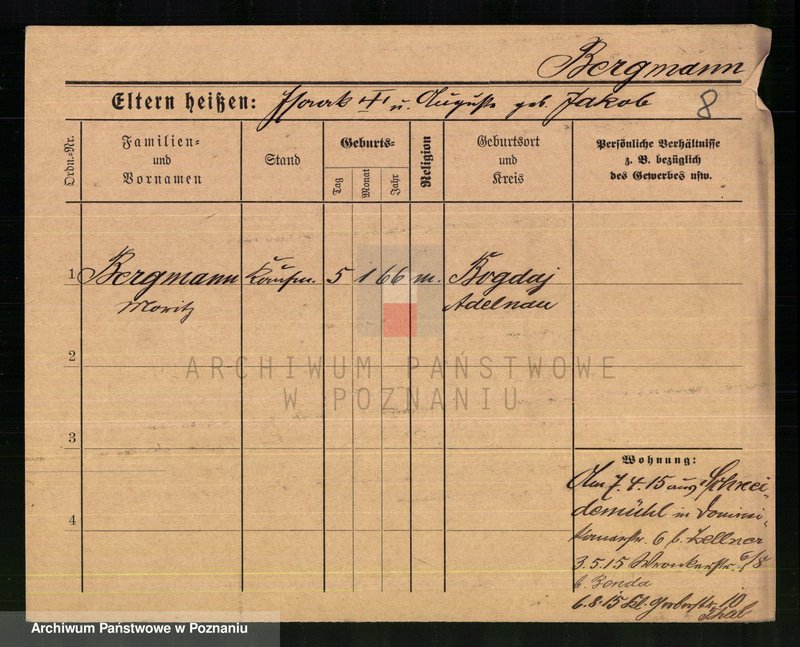 Bergmann
Eltern heißen: Isaak † u. Auguste geb. Jakob 8
Ordn.-Nr.
Familien-
und
Vornamen
Stand
Geburts-
Tag
Monat
Jahr
Religion
Geburtsort
und
Kreis
Persönliche Verhältnisse
z. B. bezüglich
des Gewerbes usw.
1 Bergmann Kaufm. 5 1 66 m. Bogdaj
Moritz Adelnau
2
ARCHIWUM PAŃSTWOWE
W POZNANIU
3
4
Wohnung:
Am 7.4.15 aus Schnei-
demühl in Domini-
kanerstr. 6 b. Zellner
3.5.15 Wronkerstr. 6/8
b. Zonda
6.8.15 Kl. Gerberstr. 10
Archiwum Państwowe w Poznaniu